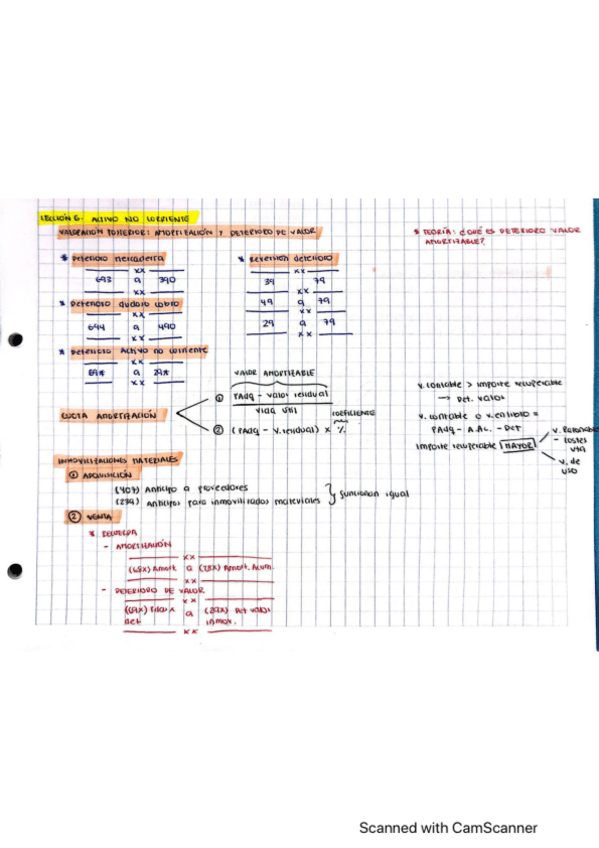 LECCIÓN 6. ACTIVO NO CORRIENTE
VALORACIÓN POSTERIOR: AMORTIZACIÓN Y DETERIORO DE VALOR
* TEORÍA: ¿QUÉ ES DETERIORO VALOR
AMORTIZABLE?
* Deterioro mercadería
xx
693 a 390
xx
* Deterioro dudoso cobro
xx
694 a 490
xx
* Deterioro Activo no corriente
xx
69* a 29*
xx
* Reversión deterioro
xx
39 79
xx
49 a 79
xx
29 a 79
xx
CUOTA AMORTIZACIÓN
VALOR AMORTIZABLE
① PAdq - Valor residual
Vida útil
COEFICIENTE
② (PAdq - V.residual) x %
V. contable > importe recuperable
→ Det. valor
V. contable o v. en libro =
PAdq - A.AC. - Det
importe recuperable (MAYOR)
V. Razonable
- costes
vta
V. de
uso
INMOVILIZACIONES MATERIALES
① ADQUISICIÓN
(407) Anticipo a proveedores
(239) Anticipos para inmovilizados materiales
funcionan igual
② VENTA
* RECUERDA
- AMORTIZACIÓN
xx
(68X) Amort. a (28X) Amort. Acum.
xx
- DETERIORO DE VALOR
xx
(69X) Pdas x a (29X) Det valor
det inmov.
xx
Scanned with CamScanner